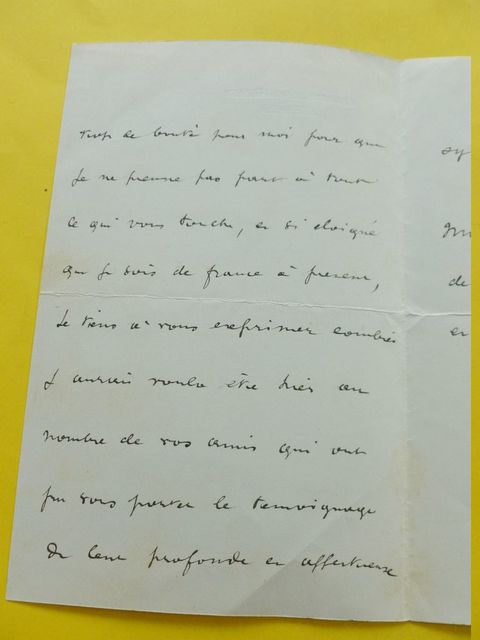 trop de bonté pour moi pour que
je ne prenne pas part à tout
ce qui vous touche, et si eloigné
que je sois de france à present,
Je tiens à vous exprimer combien
J'aurais voulu être hier au
nombre de vos amis qui ont
pu vous porter le temoignage
de leur profonde et affectueuse
sy
de
et